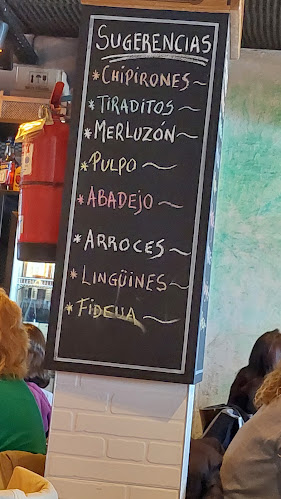 SUGERENCIAS
*CHIPIRONES~
*TIRADITOS~
*MERLUZÓN~
*PULPO~
*ABADEJO~
*ARROCES~
*LINGÜINES~
*FIDEUA~